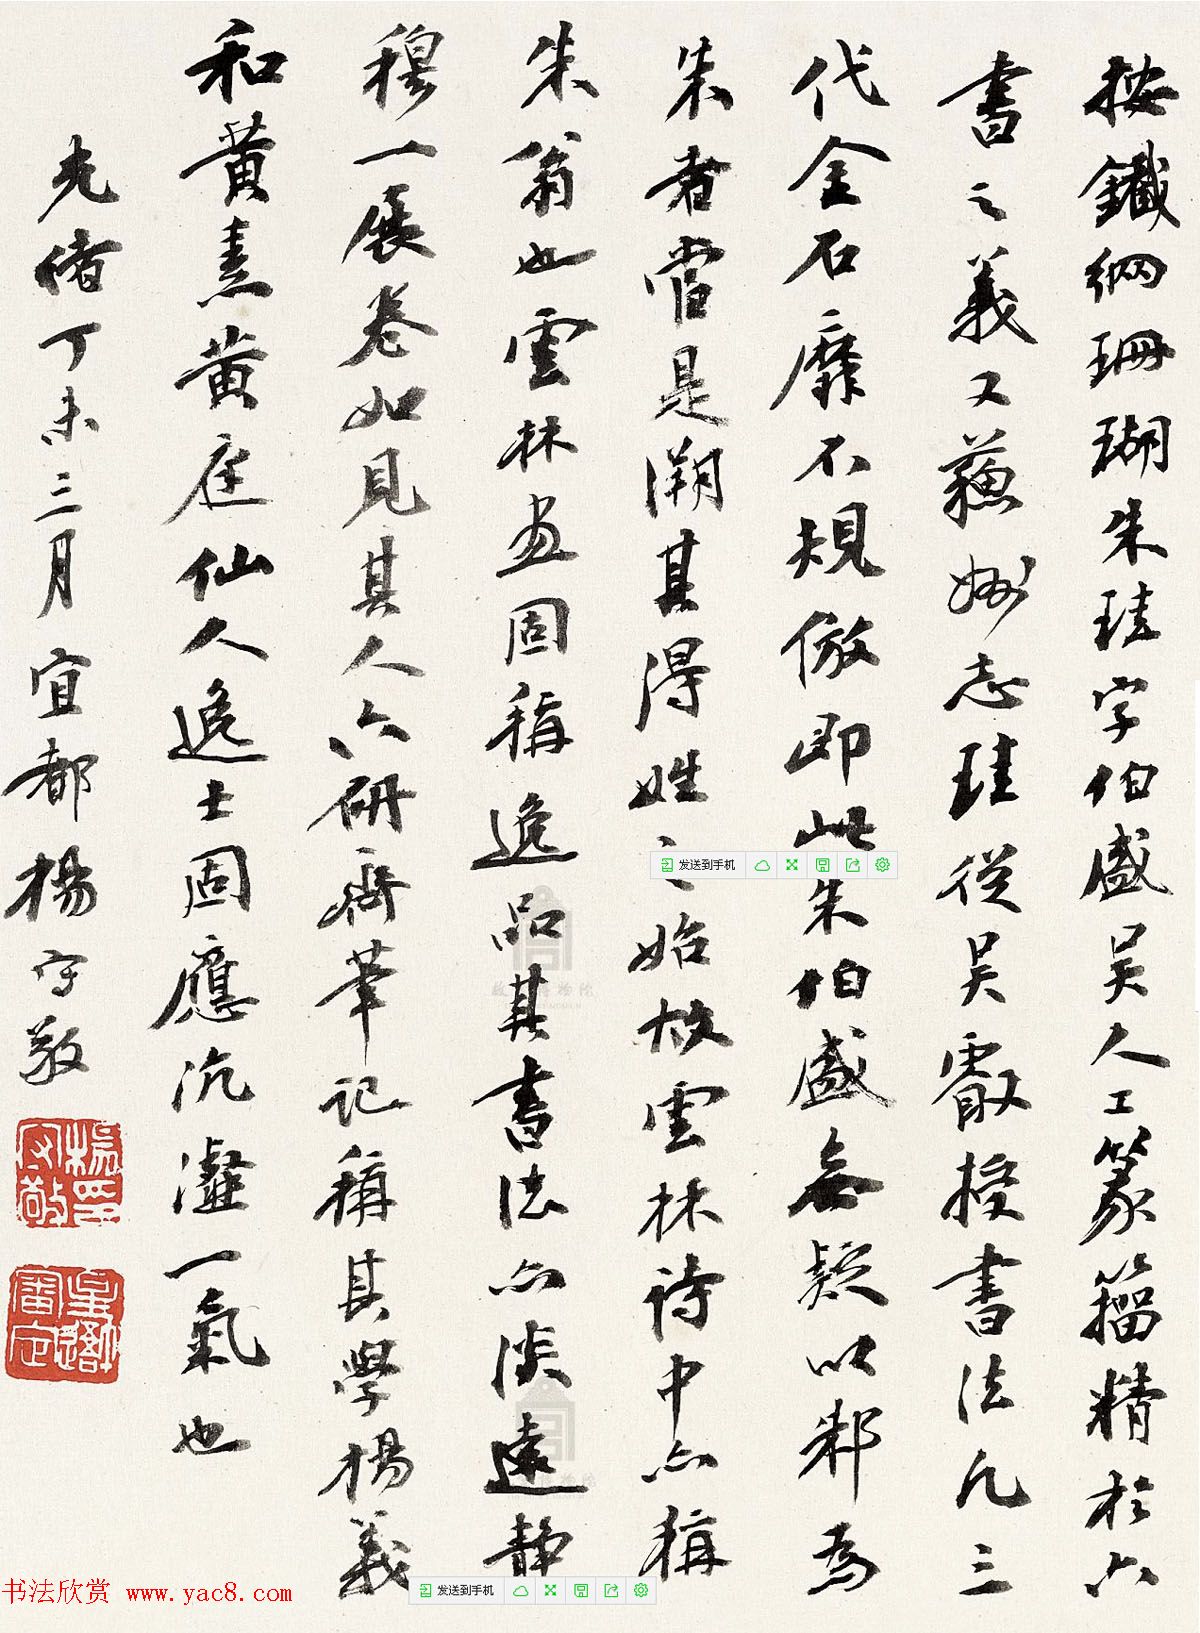 按鐵網珊瑚朱珪字伯盛吴人工篆籀精於六
書之義又蘇州志珪從吴叡授書法凡三
代金石靡不規倣即此朱伯盛無疑以邾為
朱者當是溯其得姓之始故雲林詩中亦稱
朱翁也雲林画固稱逸品其書法亦淡遠静
穆一展卷如見其人六研齋筆記稱其學楊義
和黄素黄庭仙人逸士固應沆瀣一氣也
光緒丁未三月宜都楊守敬
楊守敬印
星吾審定
发送到手机
发送到手机
书法欣赏 www.yac8.com